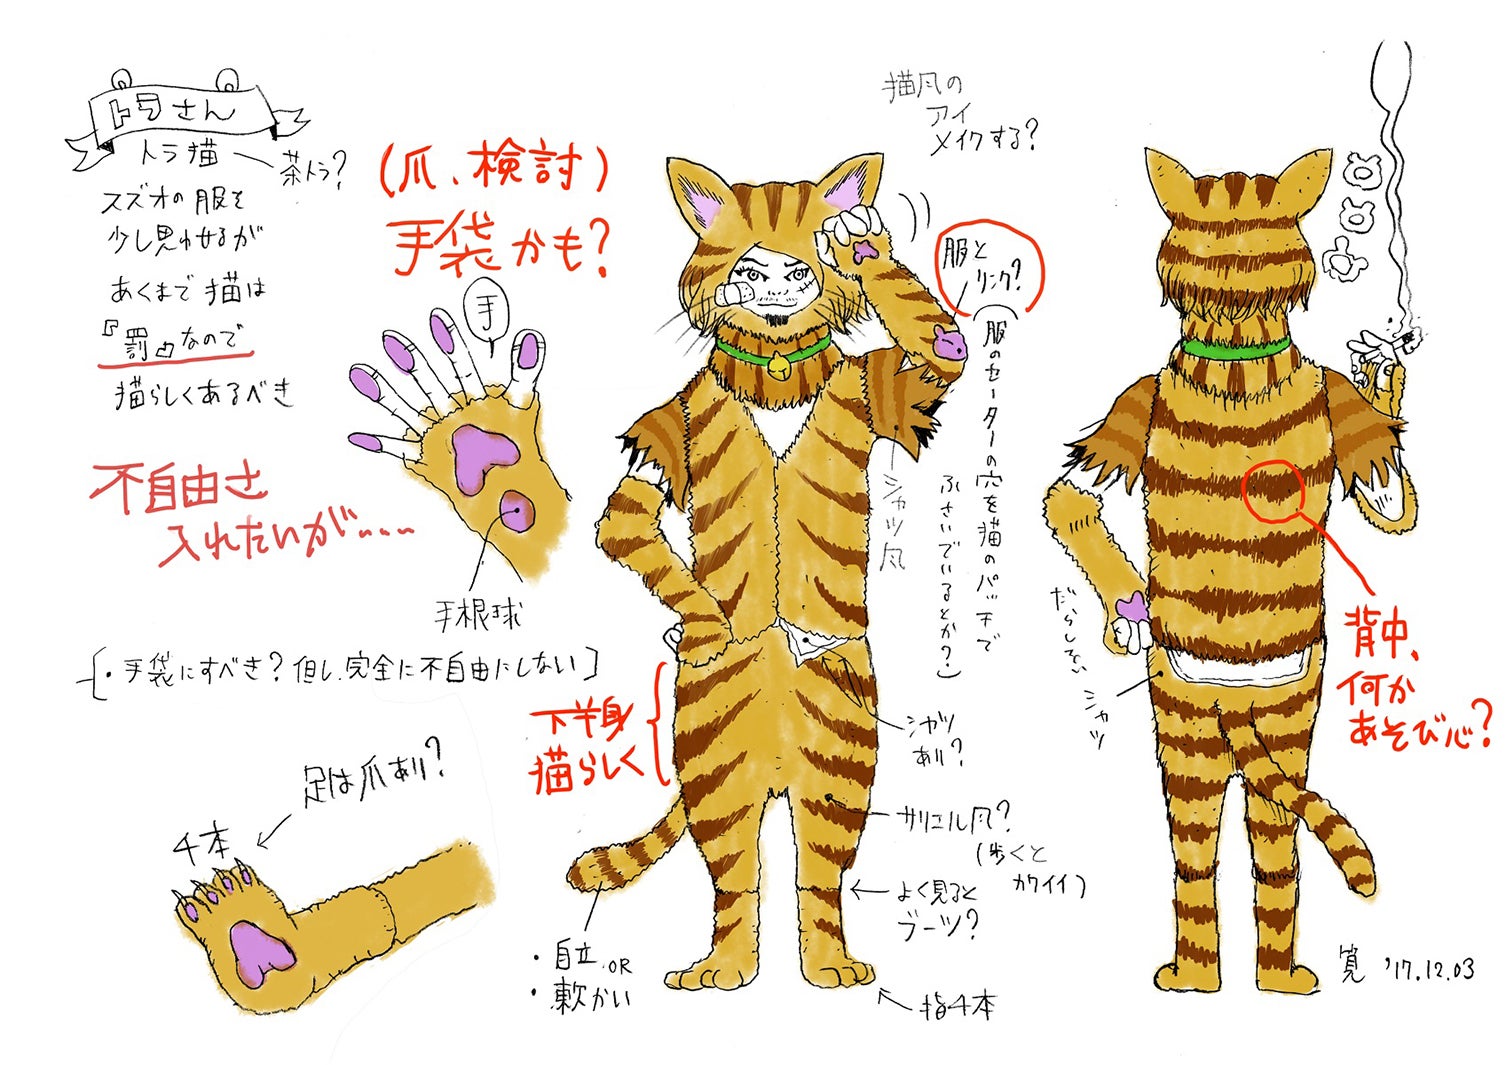 トラさん
トラ猫
茶トラ?
スズオの服を
少し思わせるが
あくまで猫は
『罰』なので
猫らしくあるべき
(爪、検討)
手袋かも?
手
不自由さ
入れたいが....
手根球
・手袋にすべき?但し、完全に不自由にしない
足は爪あり?
4本
猫風の
アイ
メイクする?
服と
リンク?
服のセーターの穴を猫のパッチで
ふさいでいるとか?
シャツ風
下半身
猫らしく
シャツ
あり?
サリエル風?
(歩くと
カワイイ)
よく見ると
ブーツ?
・自立 OR
・軟かい
指4本
だらしない
シャツ
背中、
何か
あそび心?
筧 '17.12.03